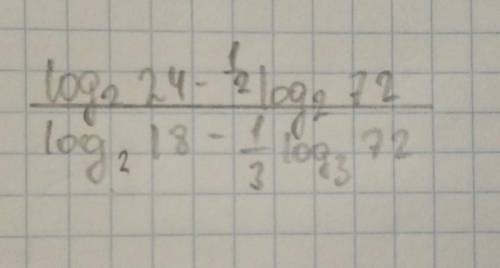 log₂ 24 - 1/2 log₂ 72
log₂ 18 - 1/3 log₃ 72